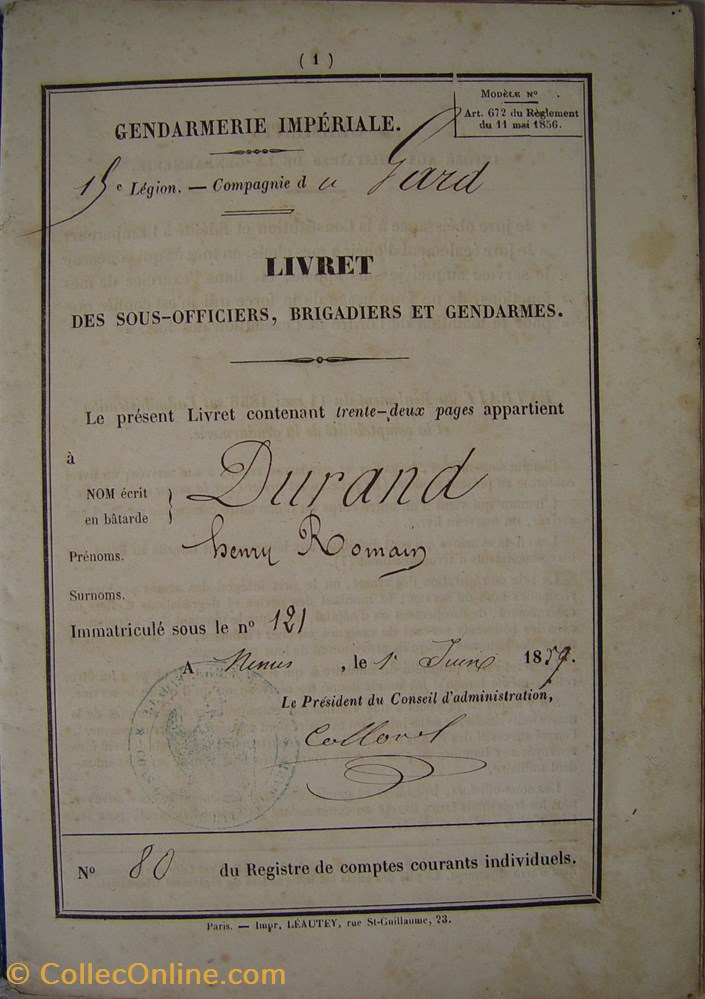 ( 1 )
MODÈLE Nº .
Art. 672 du Règlement
du 11 mai 1856.
GENDARMERIE IMPÉRIALE.
15e Légion. — Compagnie d u Gard
LIVRET
DES SOUS-OFFICIERS, BRIGADIERS ET GENDARMES.
Le présent Livret contenant trente-deux pages appartient
à
NOM écrit
en bâtarde
Durand
Prénoms. henry Romain
Surnoms.
Immatriculé sous le nº 121
A Nimes , le 1r Juin 1859.
Le Président du Conseil d'administration,
Nº 80 du Registre de comptes courants individuels.
Paris. — Impr, LÉAUTEY, rue St-Guillaume, 23.
© CollecOnline.com